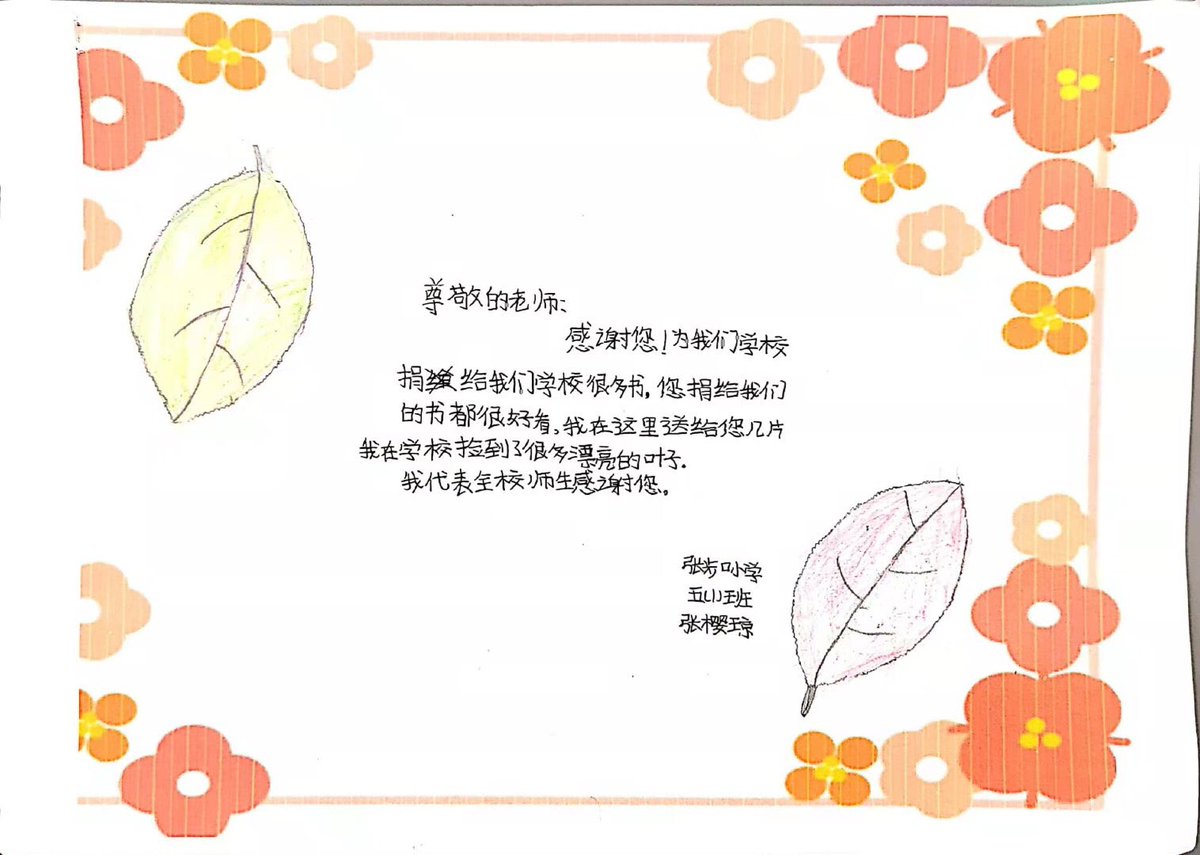 尊敬的老师:
感谢您!为我们学校
捐给我们学校很多书,您捐给我们
的书都很好看,我在这里送给您几片
我在学校捡到了很多漂亮的叶子.
我代表全校师生感谢您。
张步口小学
五(1)班
张樱琼